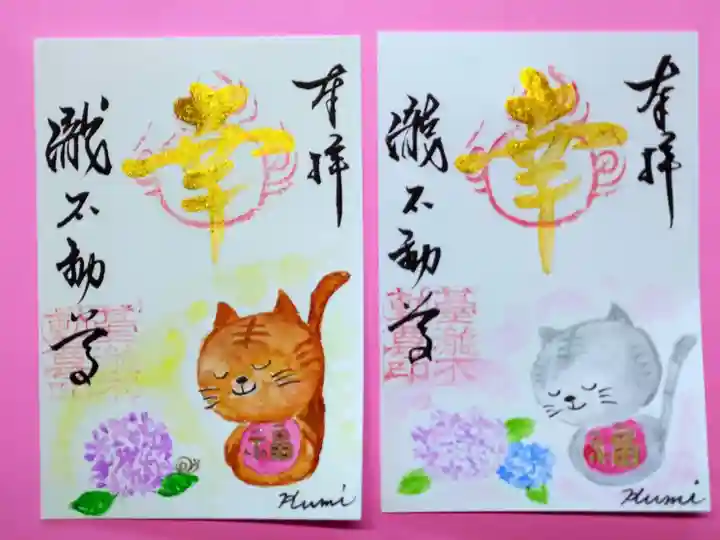 奉拝
幸
瀧不動尊
福
Humi
奉拝
幸
瀧不動尊
福
Humi